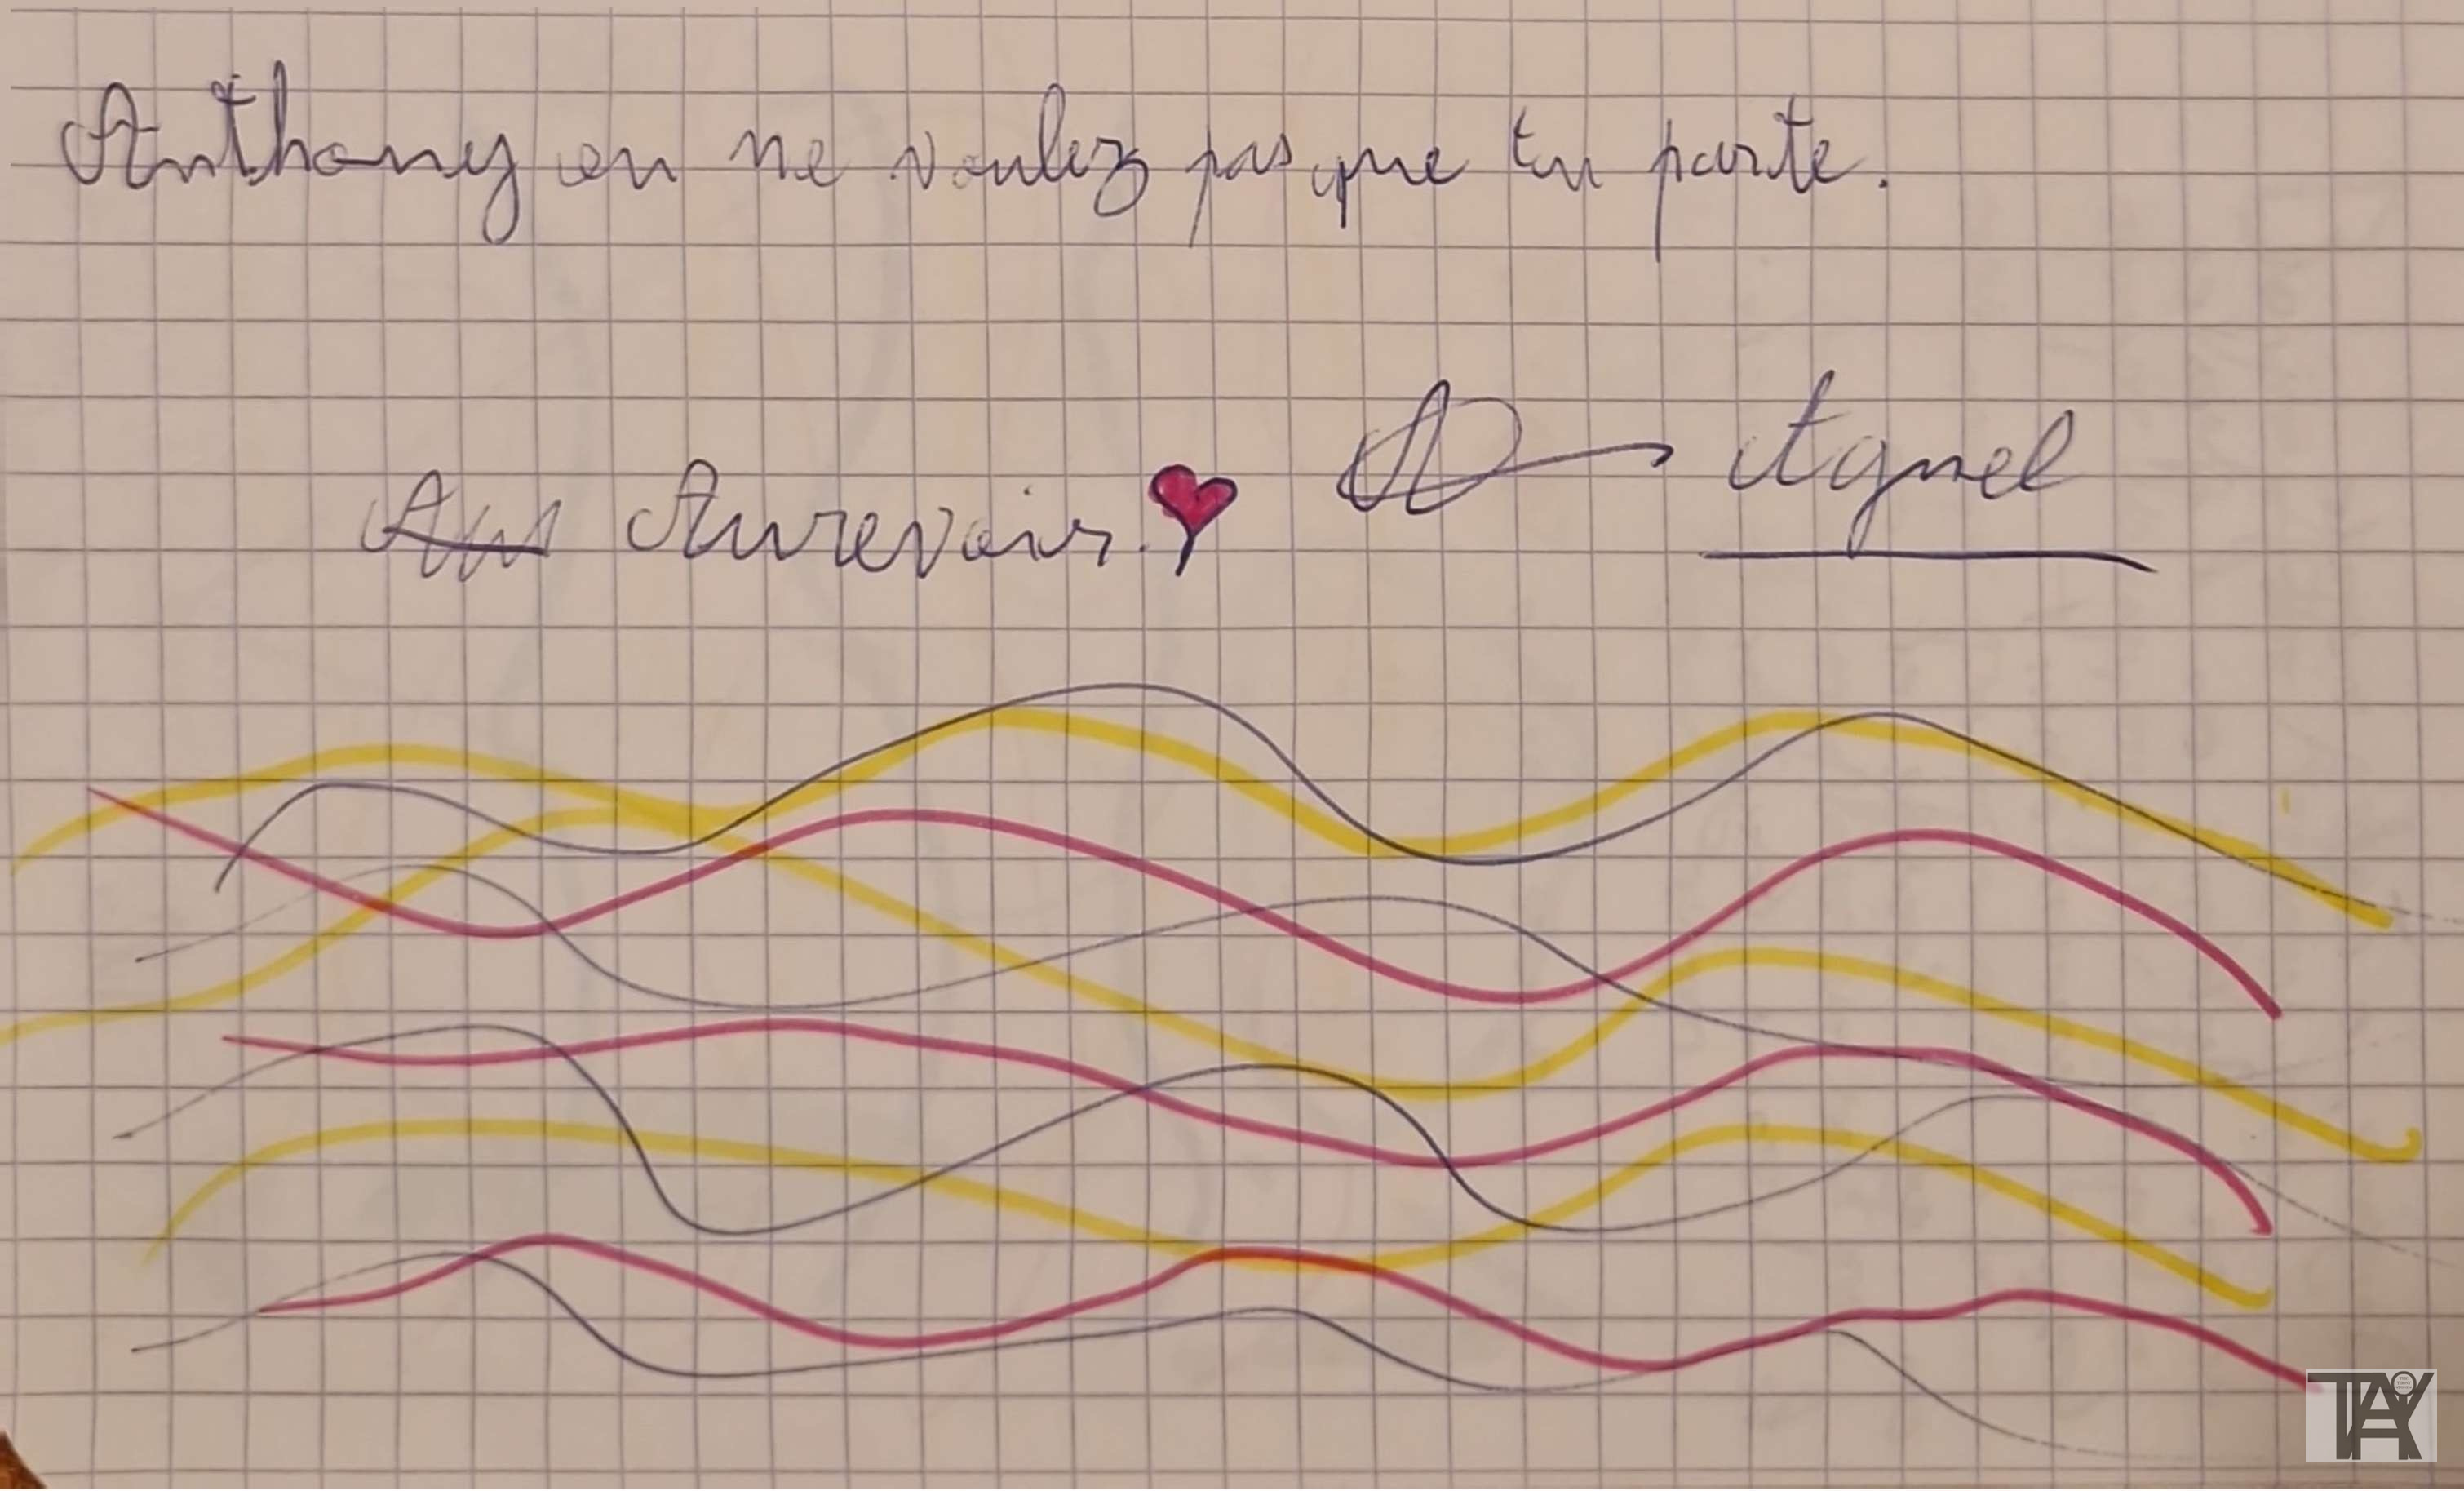 Anthony on ne voulez pas que tu parte.
Aurevoir. Agnel
TAY